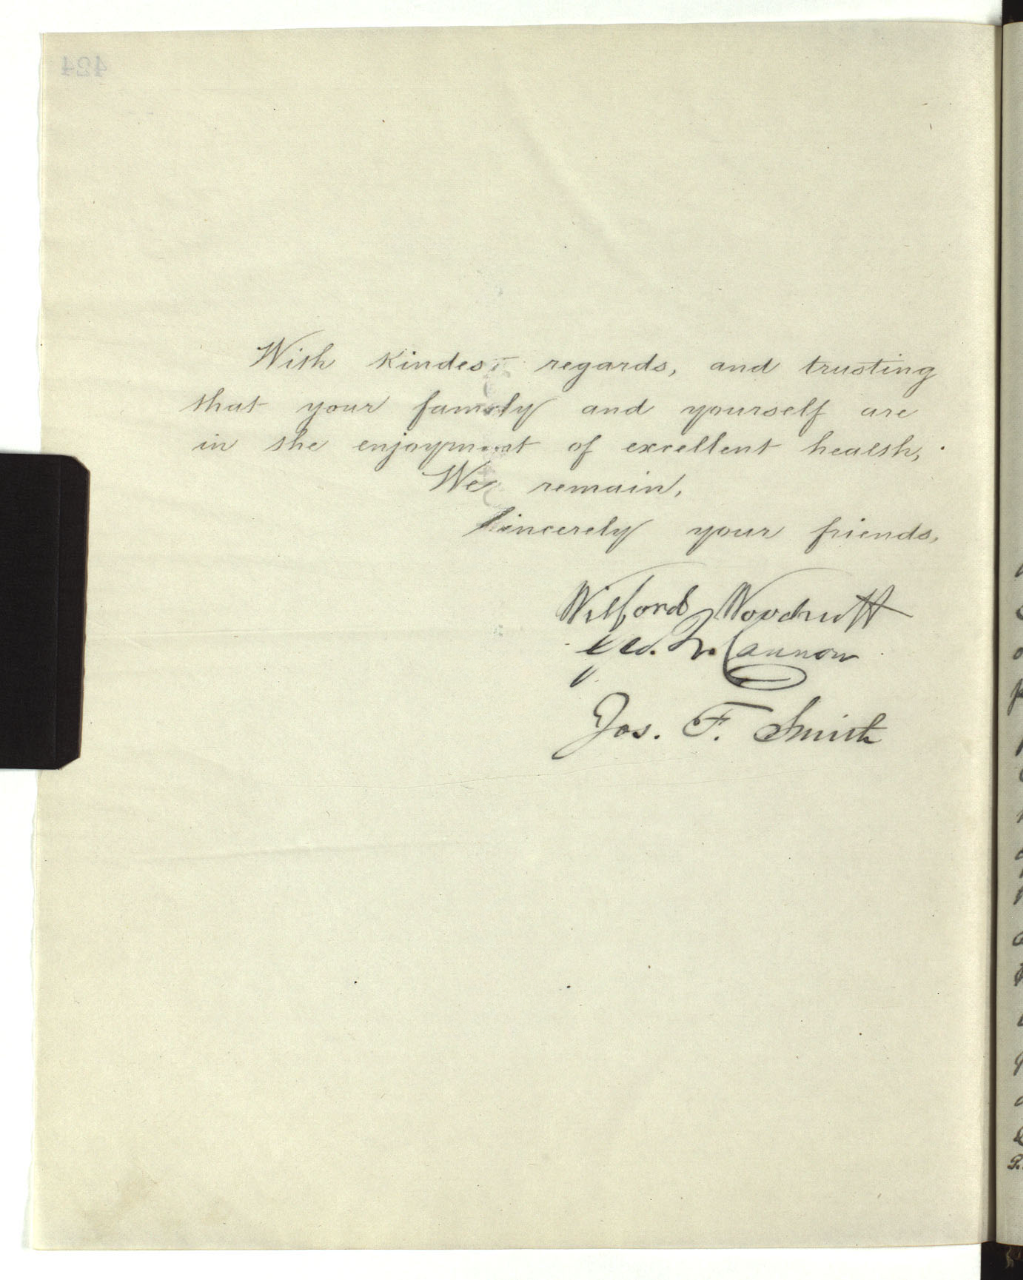 424
With kindest regards, and trusting
that your family and yourself are
in the enjoyment of excellent health,
We remain,
Sincerely your friends,
Wilford Woodruff
Geo. Q. Cannon
Jos. F. Smith